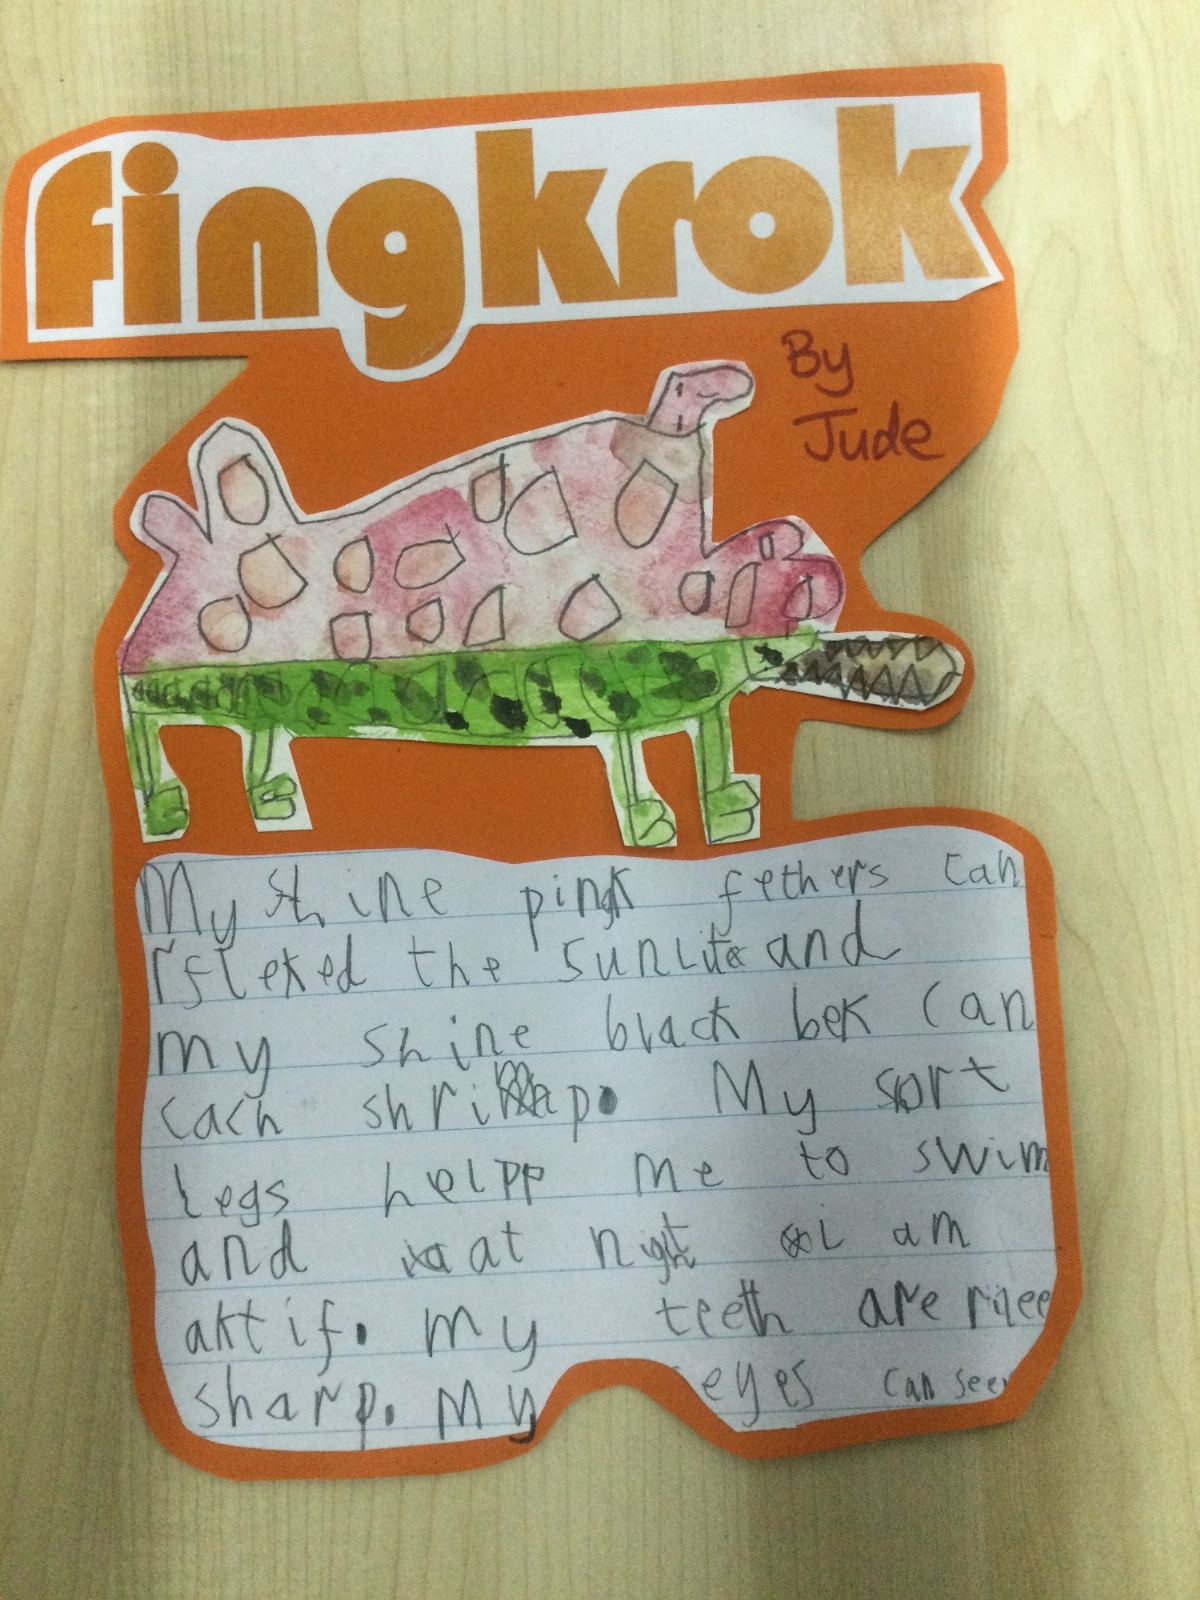 fingkrok
By
Jude
My shine pingk fethers can
rflexed the sunlite and
my shine black bek can
cach shrimp. My sort
legs helpp me to swim
and at night i am
aktif. my teeth are
sharp. My eyes can see